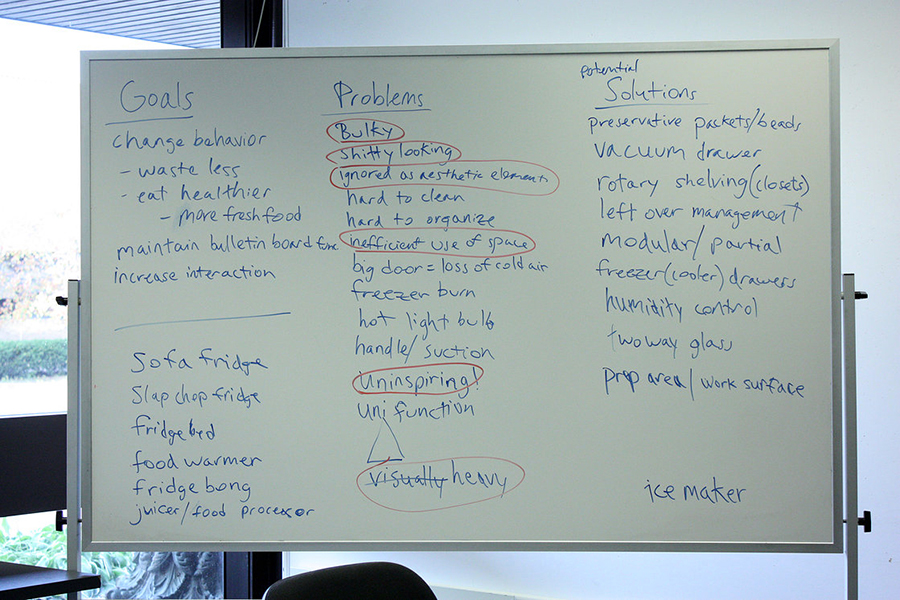 Goals
change behavior
- waste less
- eat healthier
- more fresh food
maintain bulletin board func.
increase interaction
Sofa fridge
Slap chop fridge
fridge bed
food warmer
fridge bong
juicer/food processor
Problems
Bulky
shitty looking
ignored as aesthetic element
hard to clean
hard to organize
inefficient use of space
big door = loss of cold air
freezer burn
hot light bulb
handle/suction
Uninspiring!
Uni function
visually heavy
potential
Solutions
preservative packets/beads
vacuum drawer
rotary shelving (closets)
left over management
modular/partial
freezer (cooler) drawers
humidity control
two way glass
prep area/work surface
ice maker